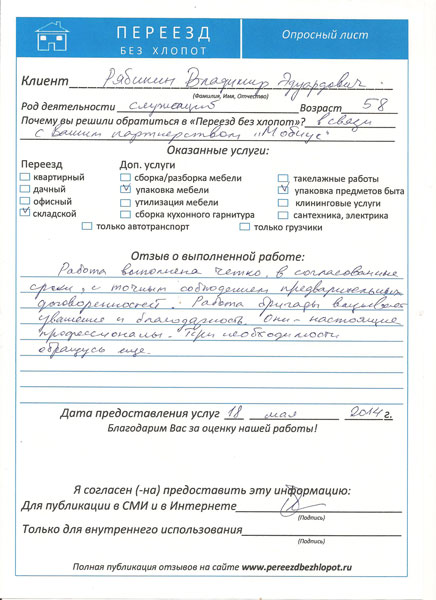 ПЕРЕЕЗД
БЕЗ ХЛОПОТ
Опросный лист
Клиент Рябинин Владимир Эдуардович
(Фамилия, Имя, Отчество)
Род деятельности служащий Возраст 58
Почему вы решили обратиться в «Переезд без хлопот»? в связи
с Вашим партнерством "Мобиус"
Оказанные услуги:
Переезд Доп. услуги
квартирный сборка/разборка мебели такелажные работы
дачный упаковка мебели упаковка предметов быта
офисный утилизация мебели клининговые услуги
складской сборка кухонного гарнитура сантехника, электрика
только автотранспорт только грузчики
Отзыв о выполненной работе:
Работа выполнена четко, в согласованные
сроки, с точным соблюдением предварительных
договоренностей. Работа бригады вызывает
уважение и благодарность. Они - настоящие
профессионалы. При необходимости
обращусь еще.
Дата предоставления услуг 18 мая 2014 г.
Благодарим Вас за оценку нашей работы!
Я согласен (-на) предоставить эту информацию:
Для публикации в СМИ и в Интернете
(Подпись)
Только для внутреннего использования
(Подпись)
Полная публикация отзывов на сайте www.pereezdbezhlopot.ru